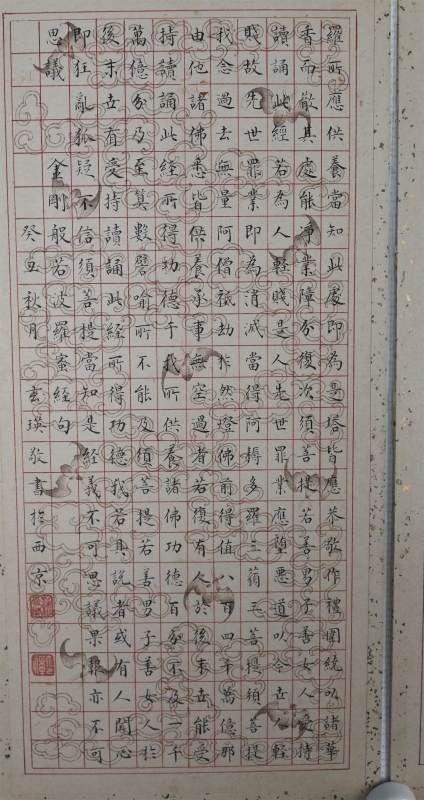 羅所應供養當知此處即為是塔皆應恭敬作禮圍繞以諸華
香而散其處能淨業障分復次須菩提若善男子善女人受持
讀誦此經若為人輕賤是人先世罪業應墮惡道以今世人輕
賤故先世罪業即為消滅當得阿耨多羅三藐三菩提須菩提
我念過去無量阿僧祇劫於然燈佛前得值八百四千萬億那
由他諸佛悉皆供養承事無空過者若復有人於後末世能受
持讀誦此經所得功德于我所供養諸佛功德百分不及一千
萬億分乃至算數譬喻所不能及須菩提若善男子善女人於
後末世有受持讀誦此經所得功德我若具說者或有人聞心
即狂亂狐疑不信須菩提當知是經義不可思議果報亦不可
思議 金剛般若波羅蜜經句
癸丑秋月 玄瑛敬書於西京